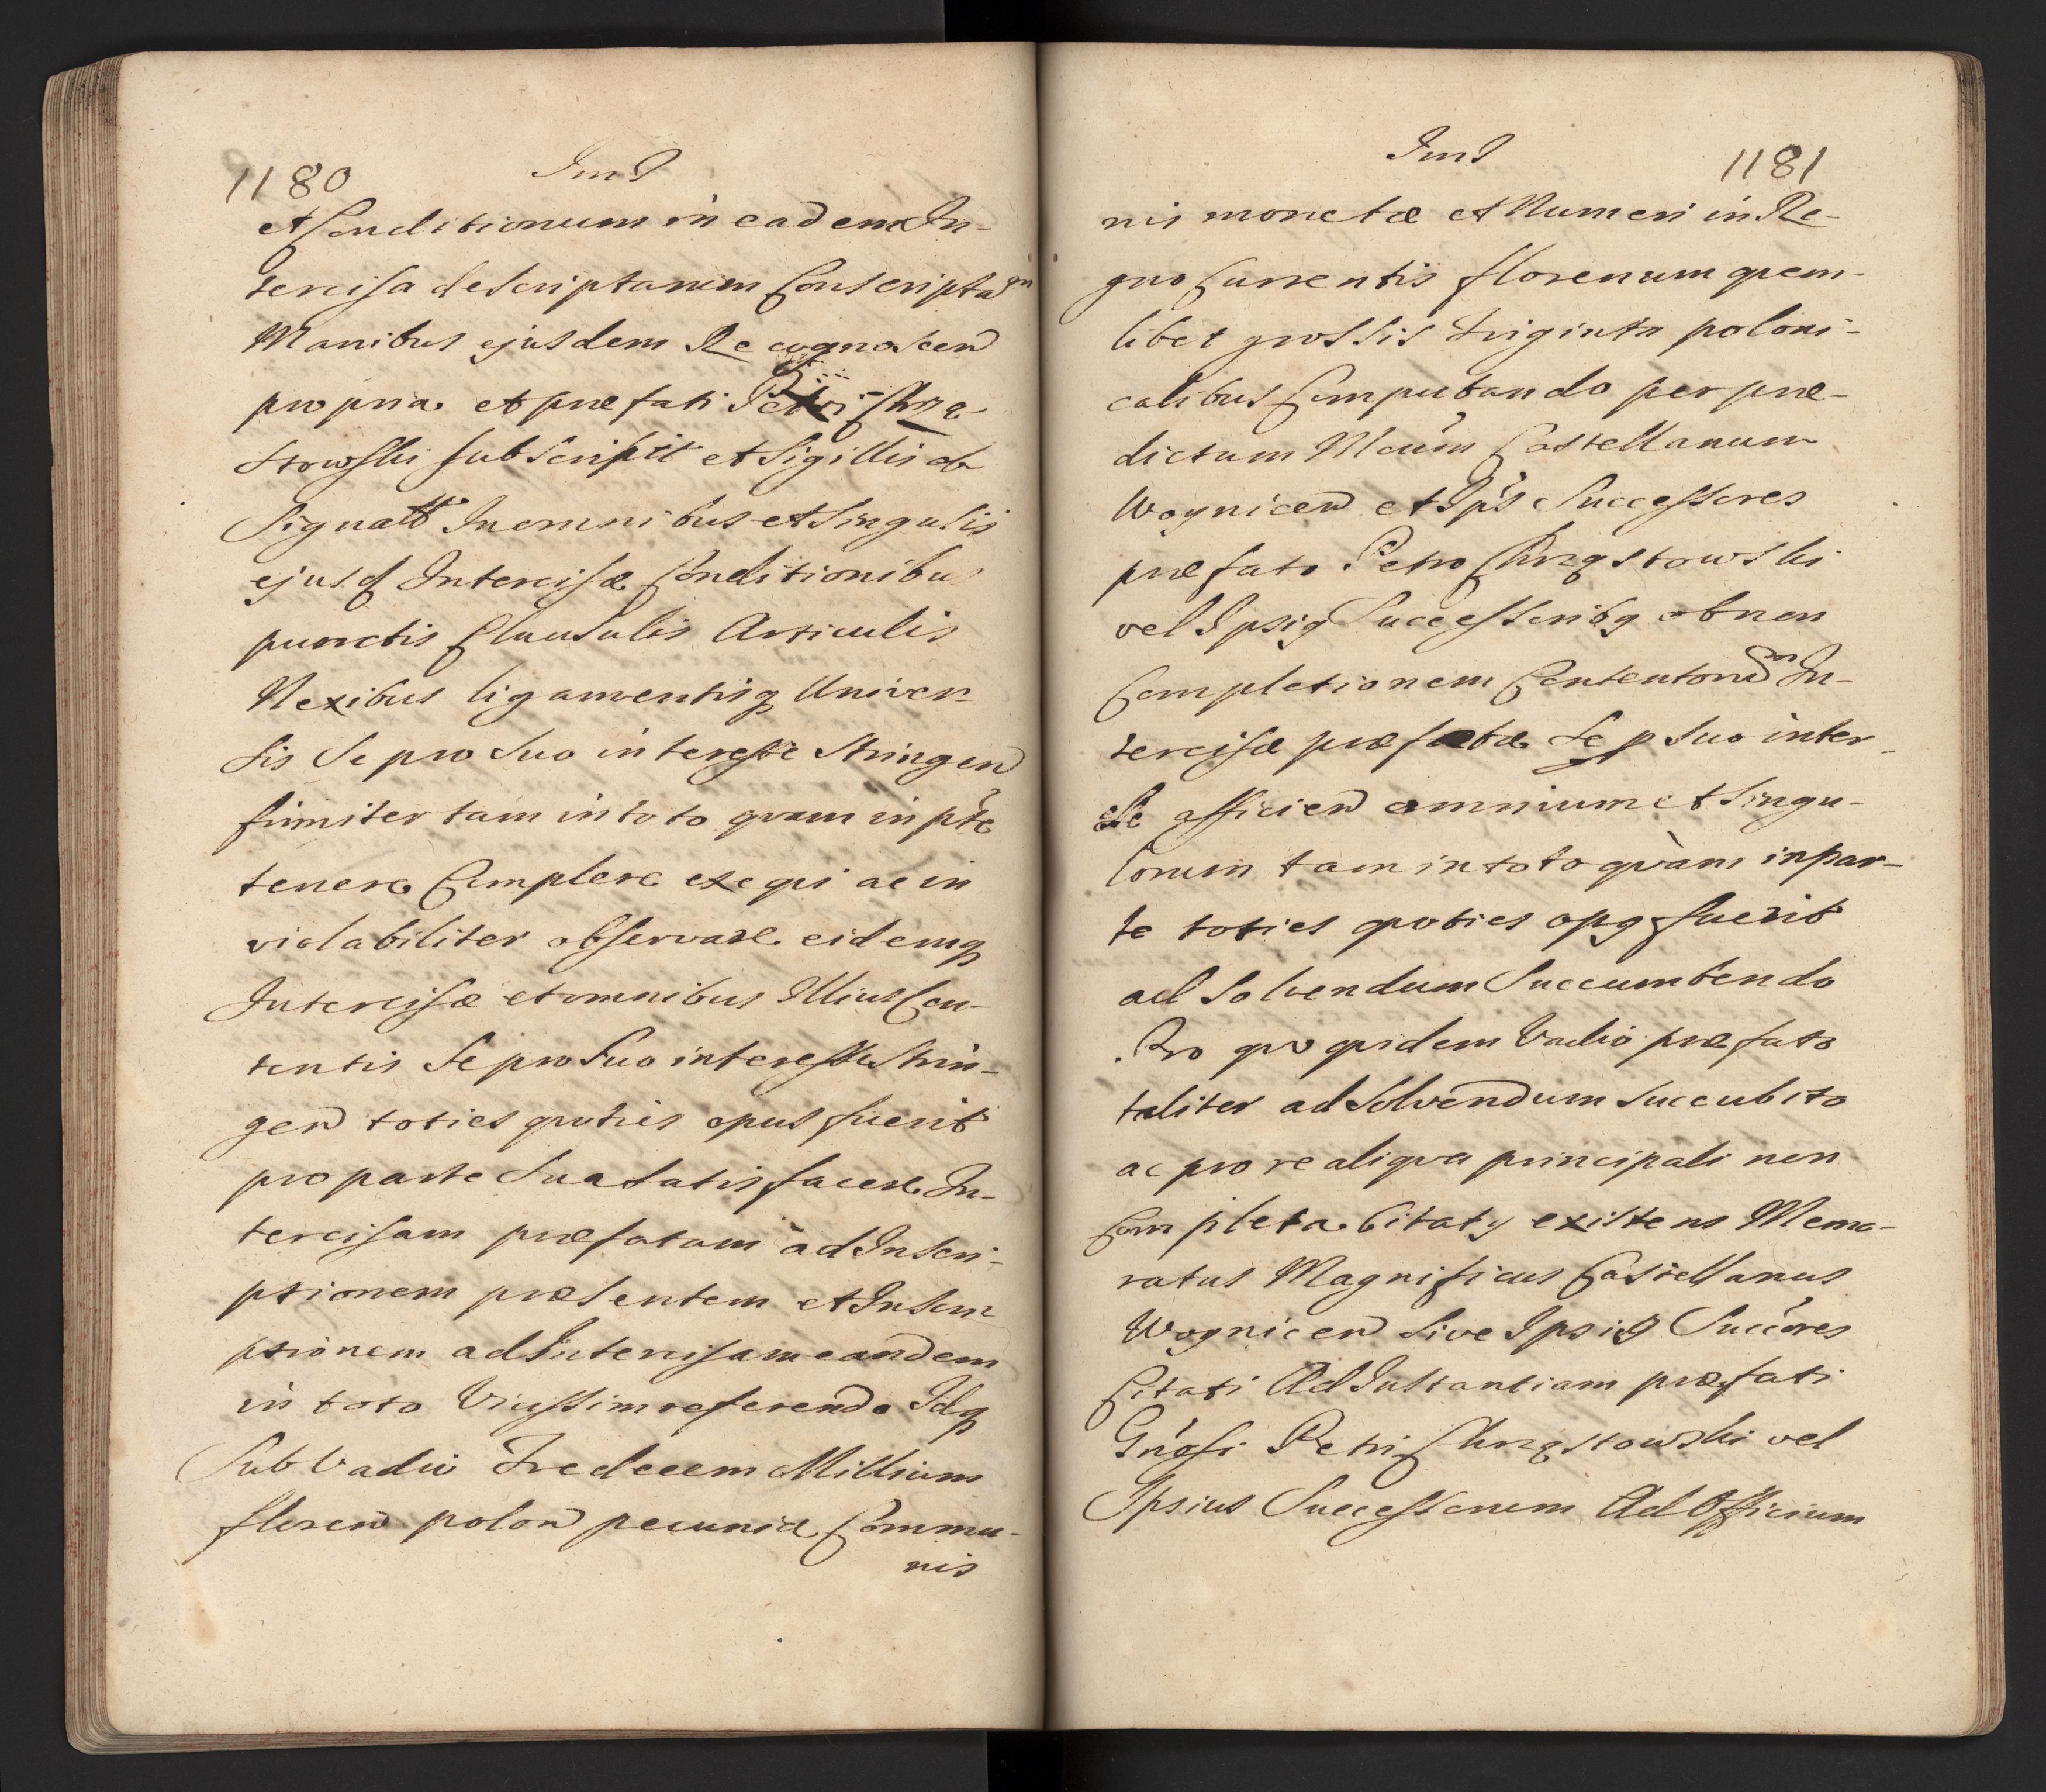 1180 Ins
et Conditionum in eadem In-
tercisa descriptarum Conscriptam
Manibus ejusdem Recognoscen
propria et præfati Petri Chrzą-
stowski subscriptt et Sigillis ob
signatt In omnibus et Singulis
ejusd Intercisæ Conditionibus
punctis Clausulis Articulis
Nexibus ligamentisq Univer-
sis Se pro Suo interesse Stringen
firmiter tam in toto quam in pte
tenere Complere exequi ac in
violabiliter observare eidemq
Intercisæ et omnibus Illius Con-
tentis Se pro Suo interesse Strin-
gen toties quoties opus fuerit
pro parte Sua Satisfacere In-
tercisam præfatam ad Inscri-
ptionem præsentem et Inscri
ptionem ad Intercisam eandem
in toto Vicissim referendo Idq
Sub Vadio Tredecem Millium
floren polon pecuniæ Commu-
nis
Ins 1181
nis monetæ et Numeri in Re-
gno Currentis florenum quem-
libet grossis triginta poloni-
calibus Computando per præ-
dictum Mcum Castellanum
Woynicen et Ips Successores
præfato Petro Chrząstowski
vel Ipsig Successoribg ob non
Completionem Contentorum In-
tercisæ præfatæ Se p Suo inter-
esse afficien omnium et Singu-
lorum tam in toto quàm in par-
te toties quoties opg fuerit
ad Solvendum Succumbendo
Pro quo quidem Vadio præfato
taliter ad Solvendum Succubito
ac pro re aliqua principali non
Completa Citatg existens Memo-
ratus Magnificus Castellanus
Woynicen Sive Ipsig Succores
Citati Ad Instantiam præfati
Gnosi Petri Chrząstowski vel
Ipsius Successorum Ad Officium